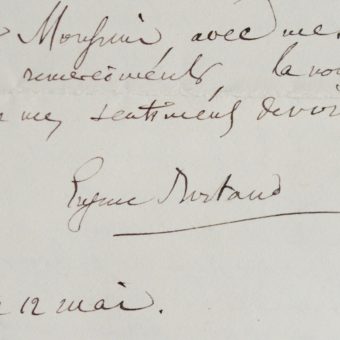 Monsieur avec me
remerciments la nou
mes sentiments devou
Eugène Bertrand
12 mai.